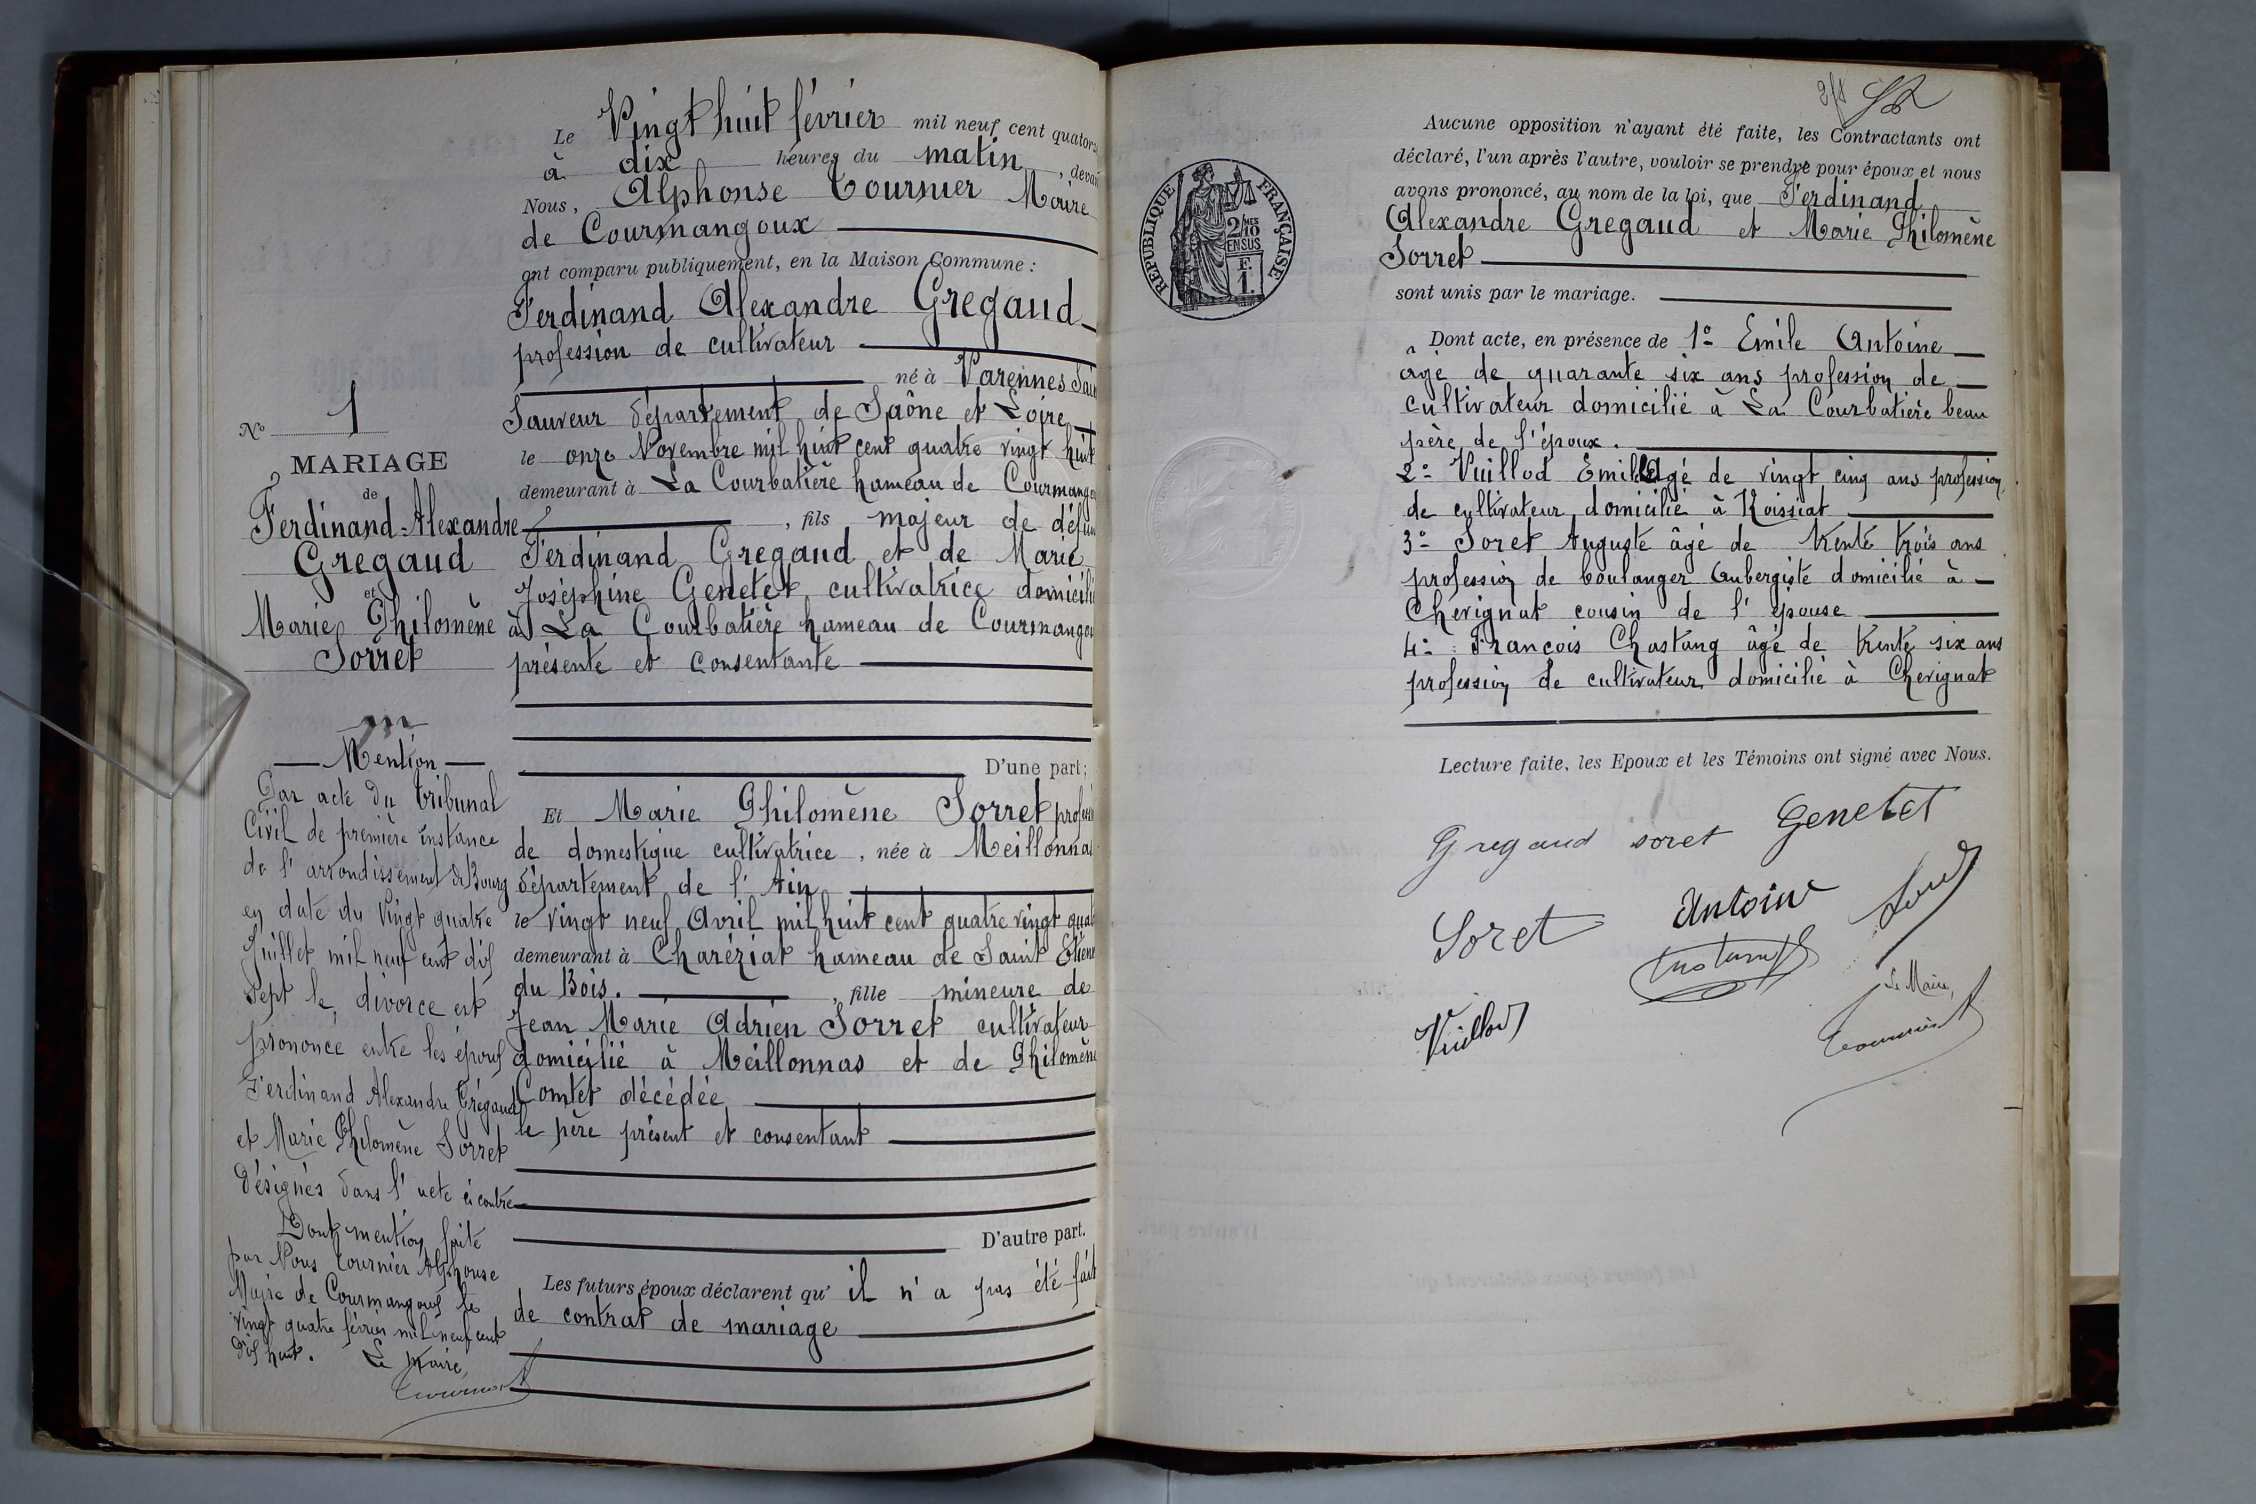 Le Vingt huit février mil neuf cent quator
à dix heures du matin, devan
Nous, Alphonse Tournier Maire
de Courmangoux
ont comparu publiquement, en la Maison Commune :
Ferdinand Alexandre Gregaud
profession de cultivateur
né à Varennes Sain
Sauveur département de Saône et Loire
le onze Novembre mil huit cent quatre vingt huit
demeurant à La Courbatière hameau de Courmango
, fils majeur de défun
Ferdinand Gregaud et de Marie
Joséphine Genetet cultivatrice domicili
à La Courbatière hameau de Courmangou
présente et consentante
D'une part;
Et Marie Philomène Sorret profess
de domestique cultivatrice, née à Meillonna
département de l'Ain
le vingt neuf Avril mil huit cent quatre vingt quat
demeurant à Charéziat hameau de Saint Etien
du Bois. , fille mineure de
Jean Marie Adrien Sorret cultivateur
domicilié à Meillonnas et de Philomèn
Comtet décédée
le père présent et consentant
D'autre part.
Les futurs époux déclarent qu' il n'a pas été fait
de contrat de mariage
No 1
MARIAGE
de
Ferdinand-Alexandre
Gregaud
et
Marie Philomène
Sorret
Mention
Par acte du Tribunal
Civil de première instance
de l'arrondissement de Bourg
en date du vingt quatre
Juillet mil neuf cent dix
sept le divorce est
prononcé entre les époux
Ferdinand Alexandre Grégaud
et Marie Philomène Sorret
désignés dans l'acte ci contre
Dont mention faite
par Nous Tournier Alphonse
Maire de Courmangoux le
vingt quatre février mil neuf cent
dix huit. Le Maire,
Tournier A
2/8
RÉPUBLIQUE FRANÇAISE
2/10 MES
EN SUS
F.
1.
Aucune opposition n'ayant été faite, les Contractants ont
déclaré, l'un après l'autre, vouloir se prendre pour époux et nous
avons prononcé, au nom de la loi, que Ferdinand
Alexandre Gregaud et Marie Philomène
Sorret
sont unis par le mariage.
Dont acte, en présence de 1º Emile Antoine
âgé de quarante six ans profession de
cultivateur domicilié à La Courbatière beau
père de l'époux.
2º Vuillod Emile Agé de vingt cinq ans profession
de cultivateur domicilié à Roissiat
3º Soret Auguste âgé de trente trois ans
profession de boulanger Aubergiste domicilié à
Chevignat cousin de l'épouse
4º François Chastang âgé de trente six ans
profession de cultivateur domicilié à Chevignat
Lecture faite, les Epoux et les Témoins ont signé avec Nous.
Gregaud soret Genetet
Soret Antoine
Vuillod
Le Maire,
Tournier A